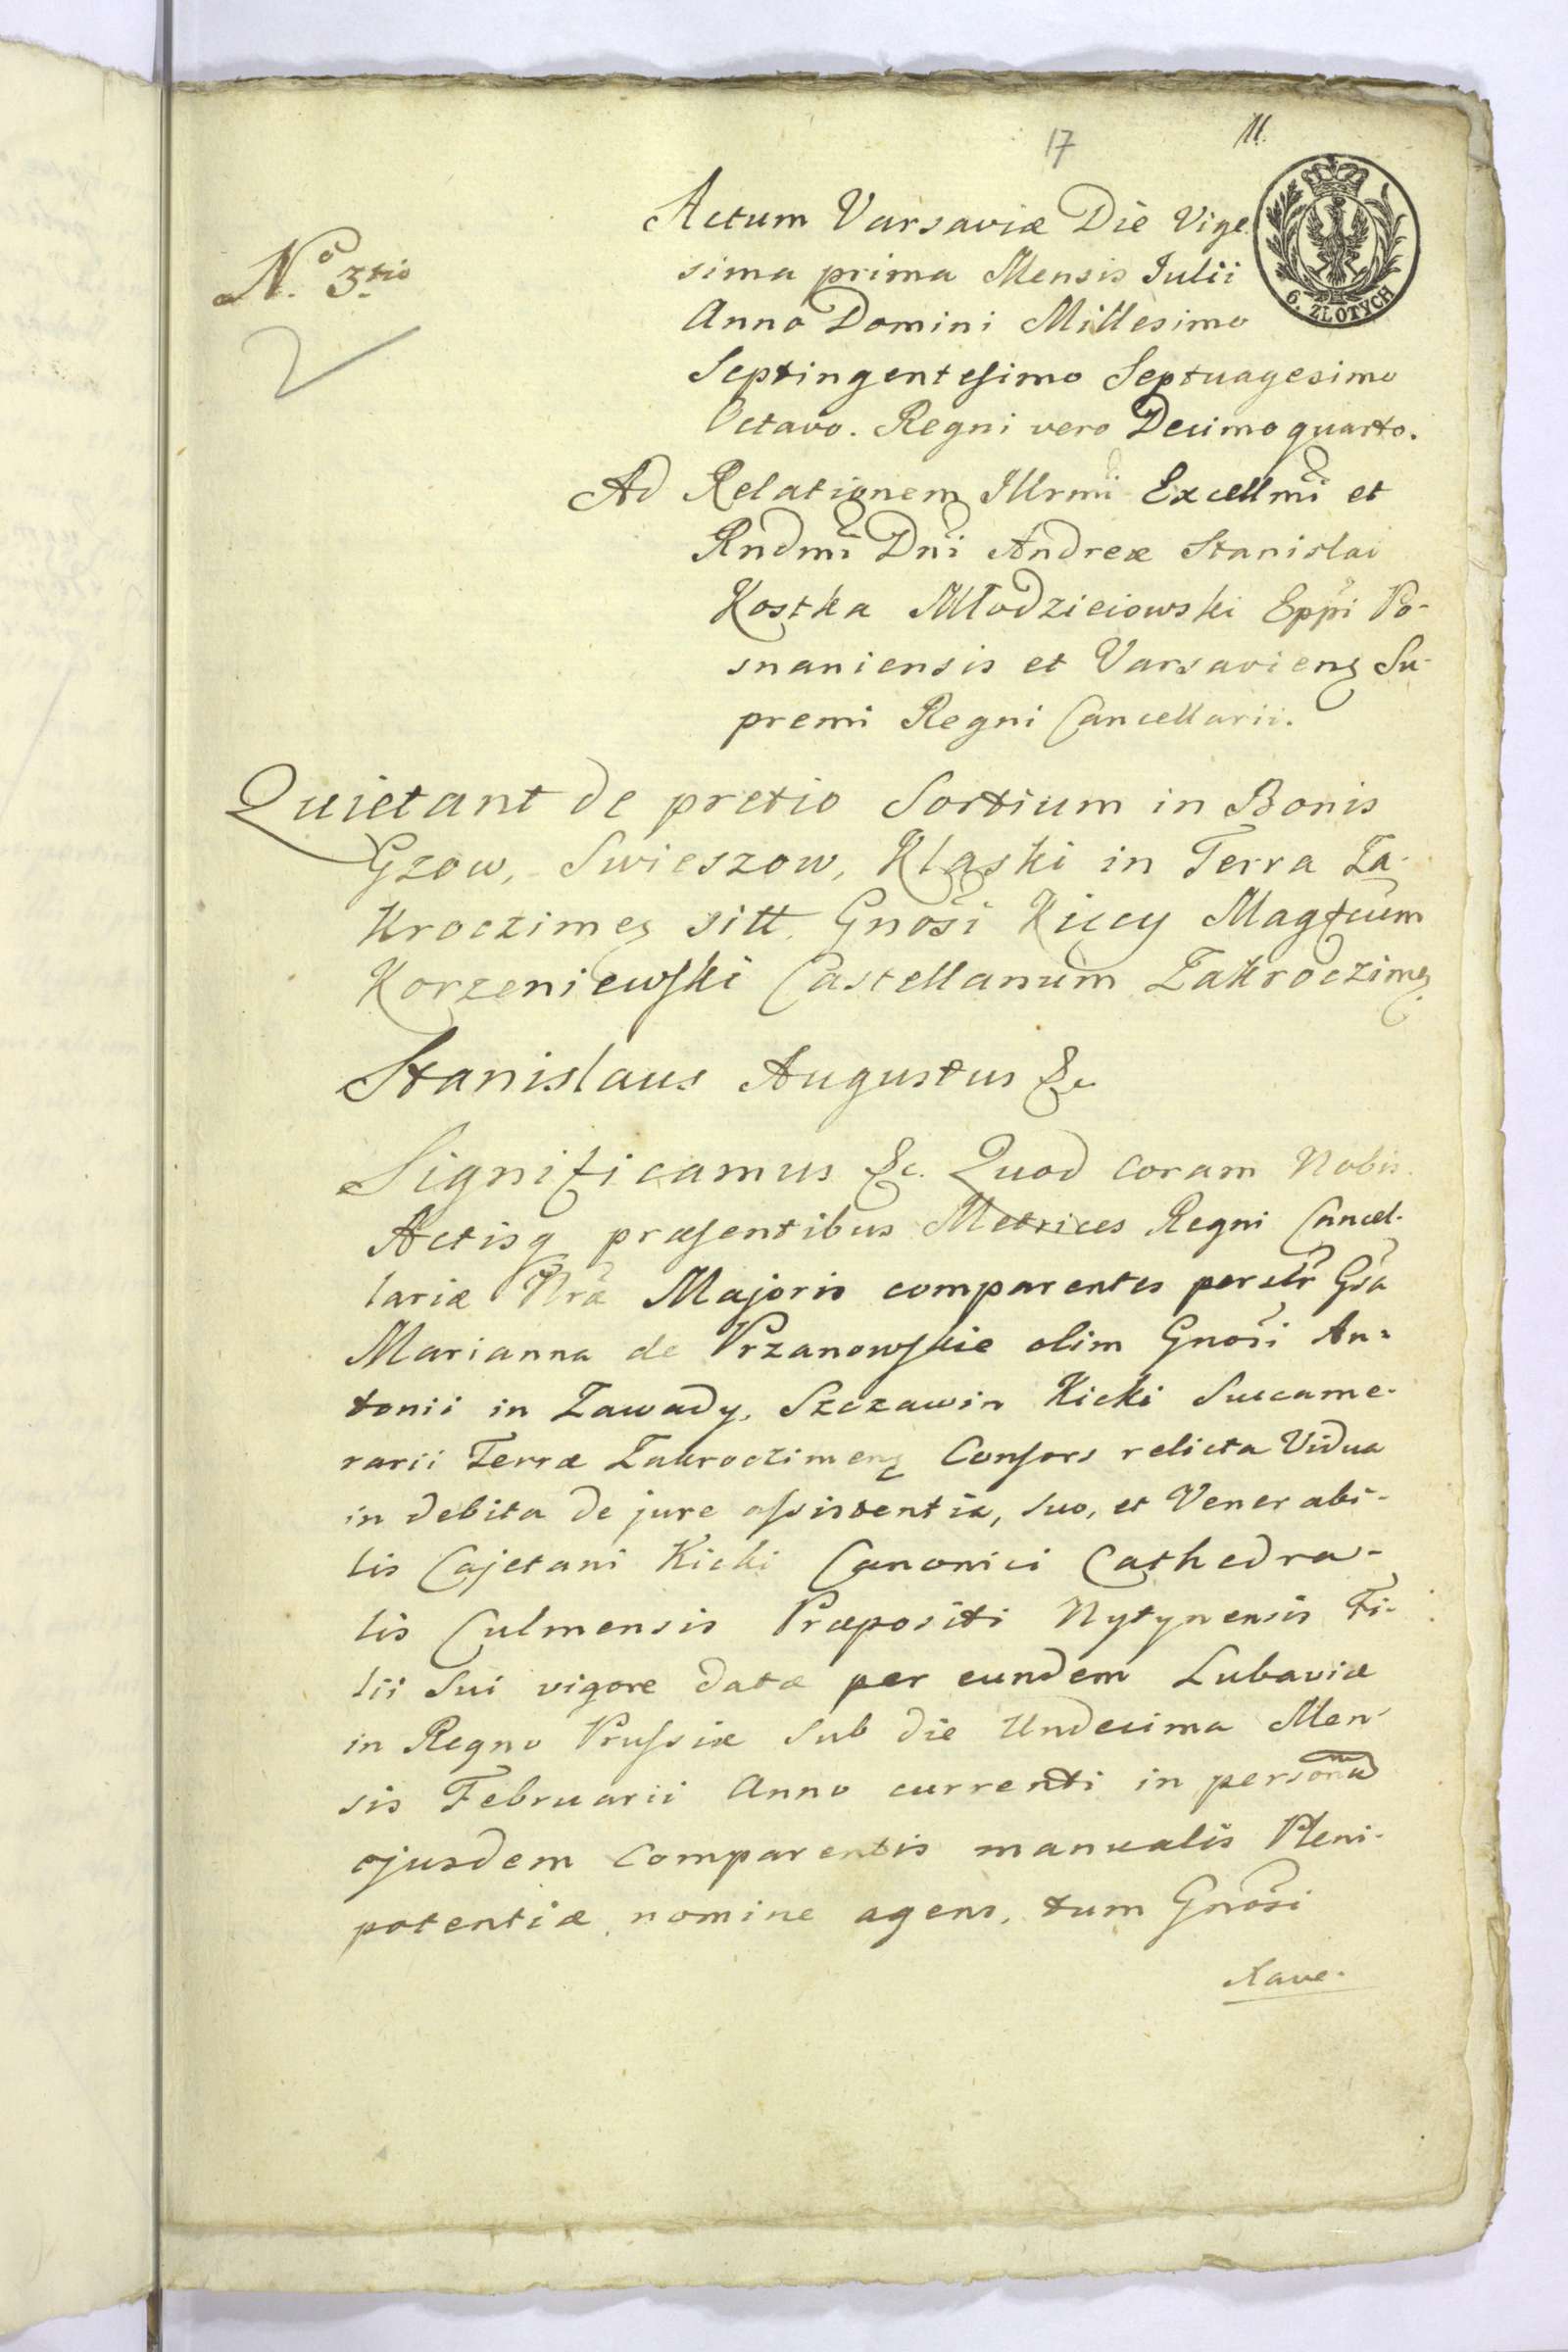 17 11.
Actum Varsaviæ Die Vige-
6. ZŁOTYCH
No. 3tio
sima prima Mensis Julii
Anno Domini Millesimo
Septingentesimo Septuagesimo
Octavo. Regni vero Decimo quarto.
Ad Relationem Illrmi Excellmi et
Rndmi Dni Andreæ Stanislai
Kostka Młodzieiowski Eppi Po-
snaniensis et Varsaviens Su-
premi Regni Cancellarii.
Quietant de pretio Sortium in Bonis
Gzow, Swieszow, Klaski in Terra Za-
kroczimens sitt. Gnosi Kiccy Magfcum
Korzeniewski Castellanum Zakroczimens
Stanislaus Augustus &c
Significamus &c. Quod coram Nobis
Actisq præsentibus Metrices Regni Cancel-
lariæ Nræ Majoris comparentes perslr Gsa
Marianna de Przanowskie olim Gnosi An-
tonii in Zawady, Szczawin Kicki Succame-
rarii Terræ Zakroczimens Consors relicta Vidua
in debita de jure assistentia, suo, et Venerabi-
lis Cajetani Kicki Canonici Cathedra-
lis Culmensis Præpositi Nytynensis Fi-
lii Sui vigore datæ per eundem Lubaviæ
in Regno Prussiæ sub die Undecima Men-
sis Februarii Anno currenti in personam
ejusdem Comparentis manualis Pleni-
potentiæ nomine agens, tum Gnosi
Xave-